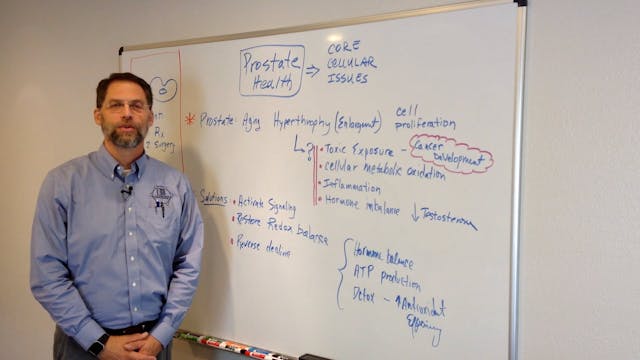 Prostate Health
⇒ CORE
CELLULAR
ISSUES
* Prostate: Aging Hyperthrophy (Enlargment) cell proliferation
↳?
• Toxic Exposure – Cancer Development
• Cellular metabolic oxidation
• Inflammation
• Hormone imbalance ↓ Testosterone
Rx
2 Surgery
Solutions: • Activate Signaling
• Restore Redox balance
• Reverse
Hormone balance
ATP production
Detox – ↑ Antioxidant